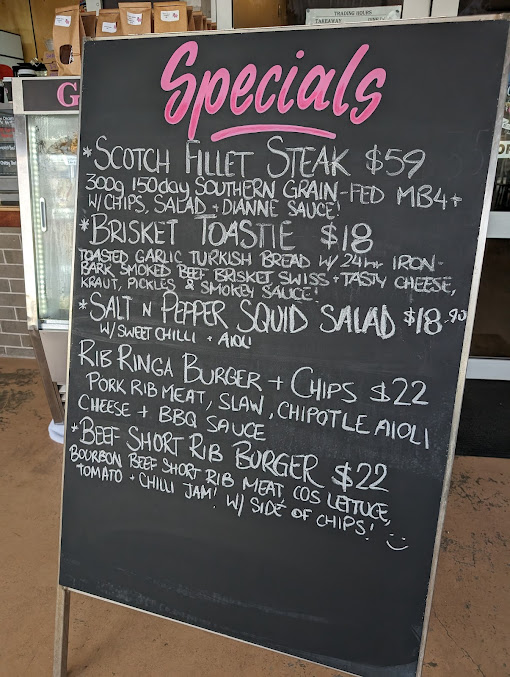 TRADING HOURS
TAKEAWAY
G
Specials
*SCOTCH FILLET STEAK $59
300g 150day SOUTHERN GRAIN-FED MB4+
W/CHIPS, SALAD + DIANNE SAUCE!
*BRISKET TOASTIE $18
TOASTED GARLIC TURKISH BREAD W/ 24hr IRON-
BARK SMOKED BEEF BRISKET SWISS + TASTY CHEESE,
KRAUT, PICKLES & SMOKEY SAUCE!
*SALT N PEPPER SQUID SALAD $18.90
W/SWEET CHILLI + AIOLI
RIB RINGA BURGER + CHIPS $22
PORK RIB MEAT, SLAW, CHIPOTLE AIOLI
CHEESE + BBQ SAUCE
*BEEF SHORT RIB BURGER $22
BOURBON BEEF SHORT RIB MEAT, COS LETTUCE,
TOMATO + CHILLI JAM! W/ SIDE OF CHIPS! :)